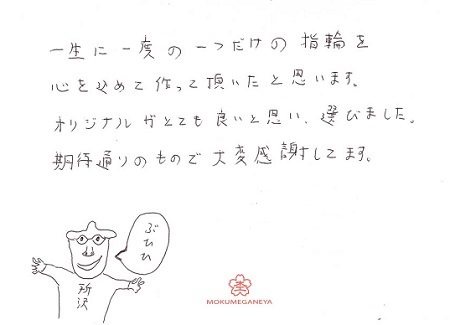 一生に一度の一つだけの指輪を
心を込めて作って頂いたと思います。
オリジナルがとても良いと思い、選びました。
期待通りのもので大変感謝してます。
ぶひひ
所沢
MOKUMEGANEYA